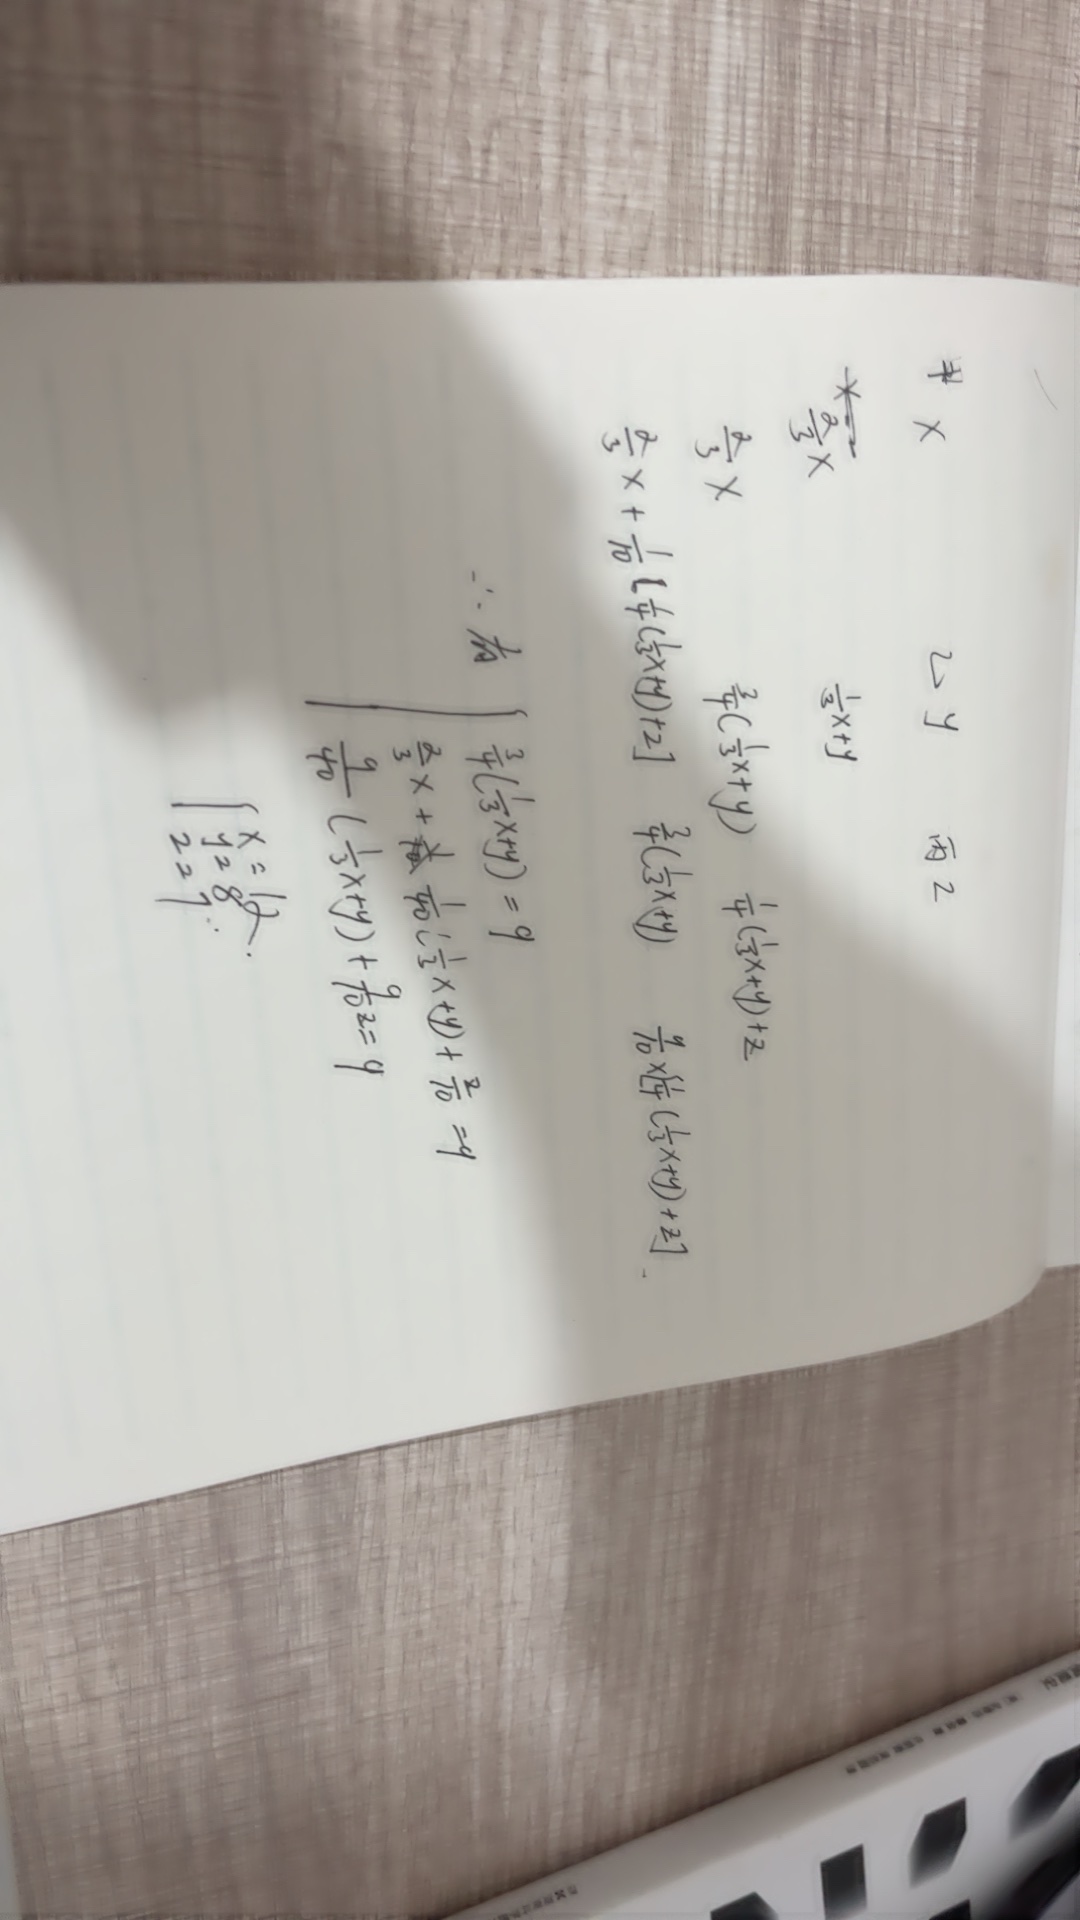 甲 x 乙 y 丙 z
2/3 x 1/3 x+y
2/3 x 3/4(1/3 x+y) 1/4(1/3 x+y)+z
2/3 x + 1/10 [1/4(1/3 x+y)+z] 3/4(1/3 x+y) 9/10 x[1/4(1/3 x+y)+z].
∴ 有 { 3/4(1/3 x+y) = 9
2/3 x + 1/40(1/3 x+y)+ z/10 =9
9/40 (1/3 x+y)+ 9/10 z= 9
{ x = 12
y = 8
z = 7.